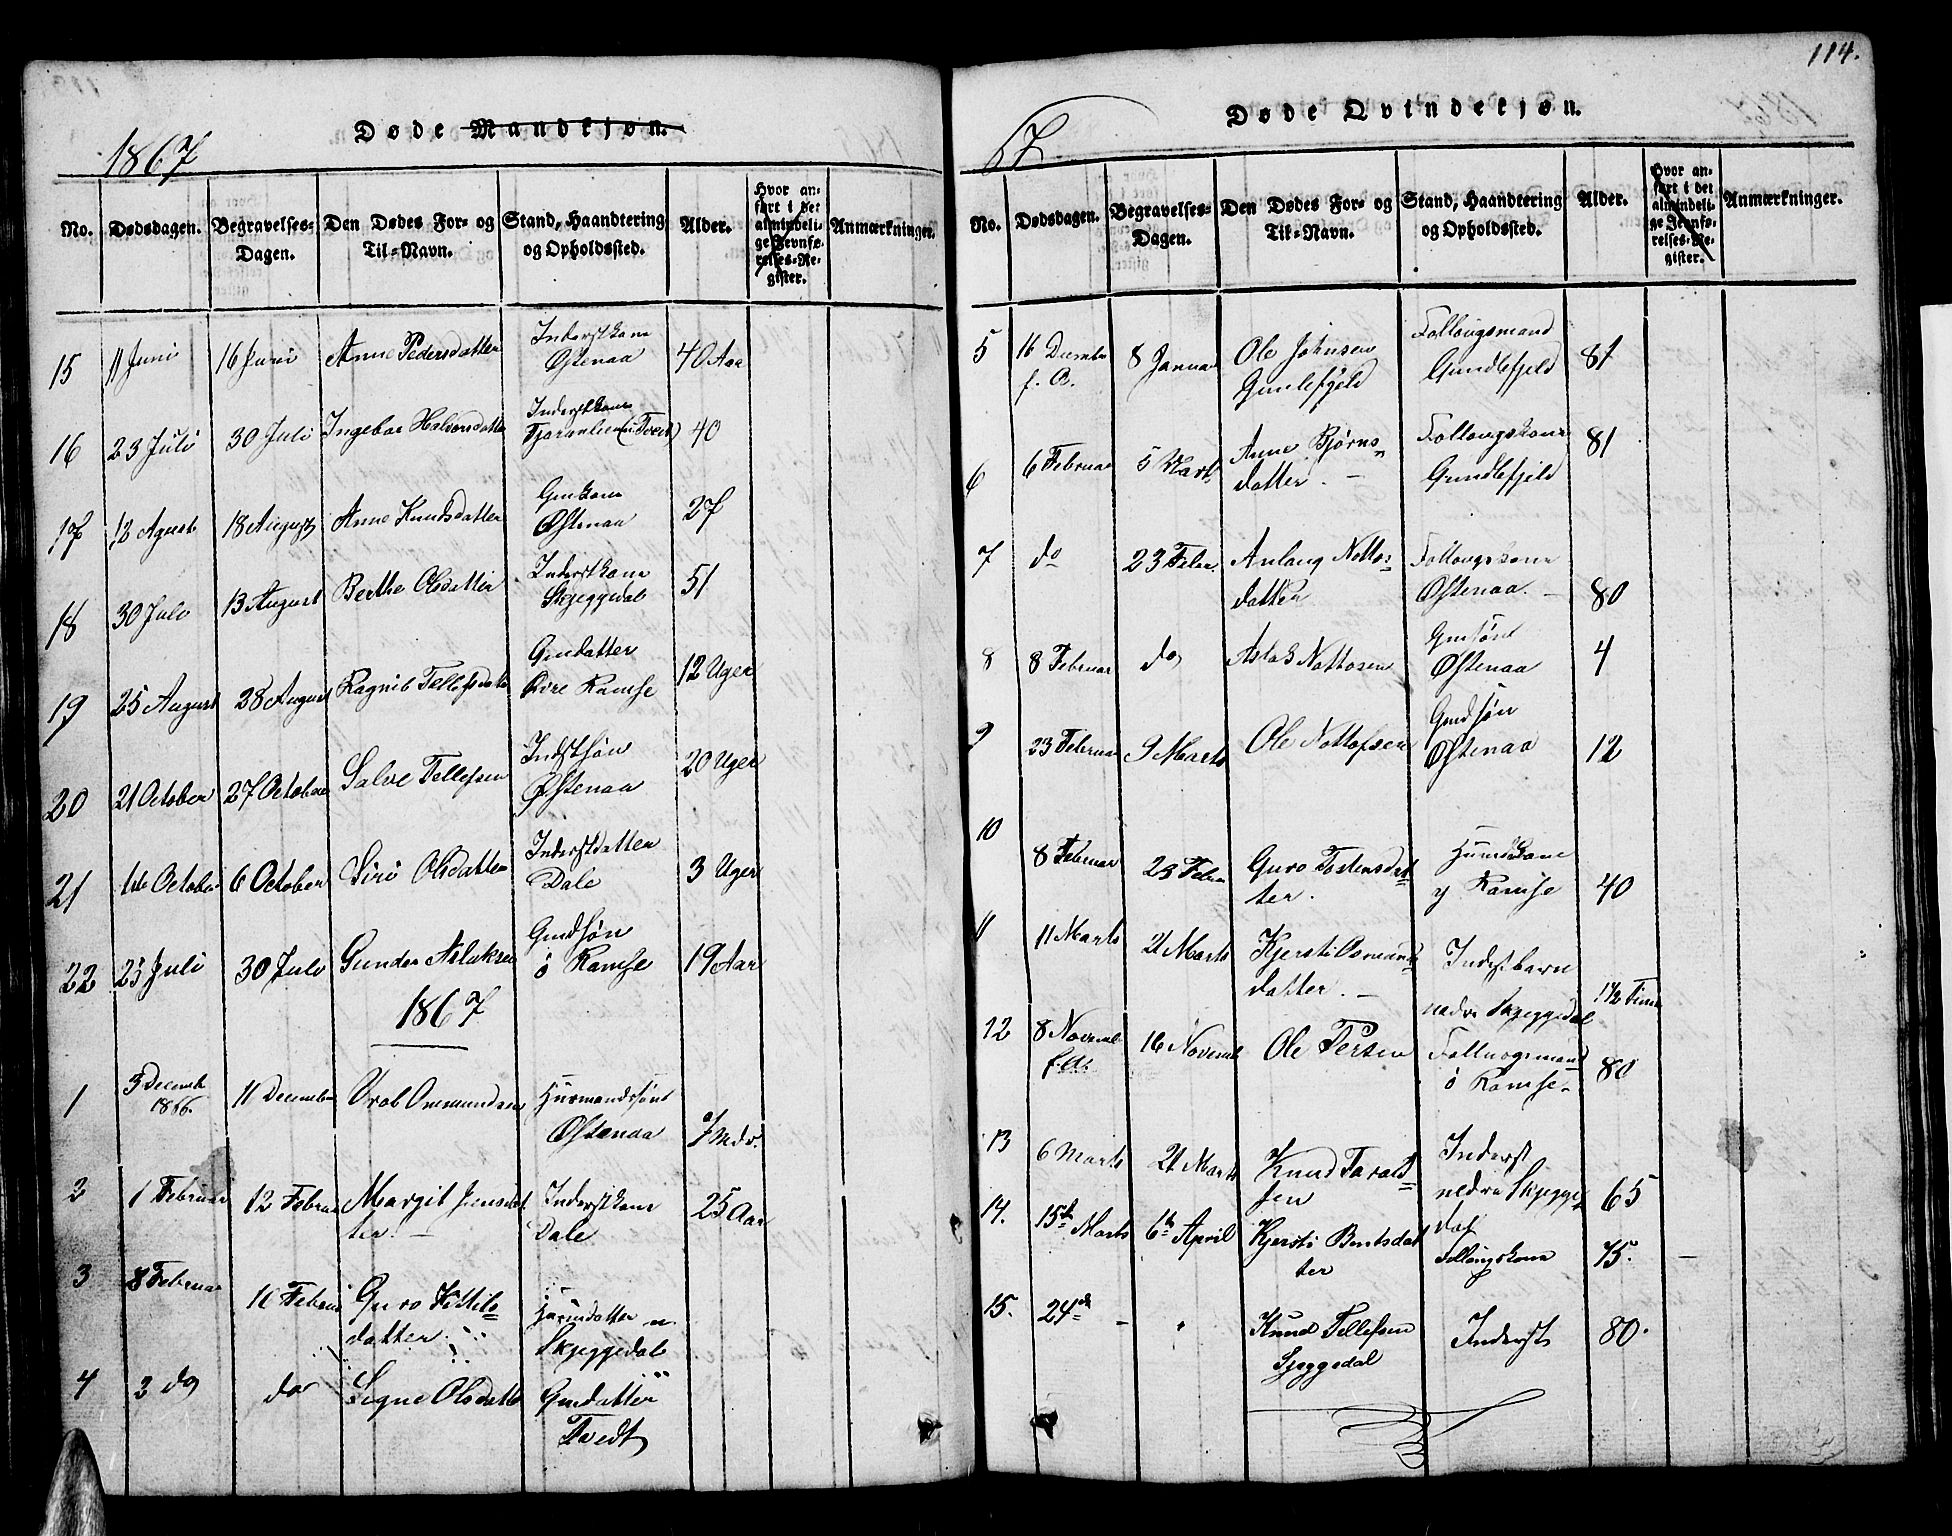 114.
Døde Mandkjøn.
1867
No. Dødsdagen. Begravelses-Dagen. Den Dødes For- og Til-Navn. Stand, Haandtering og Opholdssted. Alder. Hvor anført i det almindelige Jevnførelses-Register. Anmærkninger.
15 11 Juni 16 Juni Anne Pedersdatter Inderstkone Østenaa 40 Aar
16 23 Juli 30 Juli Ingebor Halvorsdatter Inderstkone (Tveit) 40
17 12 Agust 18 August Anne Knudsdatter Gmkone Østenaa 27
18 30 Juli 13 August Berthe Olsdatter Inderstkone Skjeggedal 51
19 25 August 28 August Ragnil Tellefsdatter Gmdatter Øvre Ramse 12 Uger
20 21 October 27 October Salve Tellefsen Indstsøn Østenaa 20 Uger
21 1ste October 6 October Siri Olsdatter Inderstdatter Dale 3 Uger
22 23 Juli 30 Juli Gunder Aslaksen Gmdsøn ö Ramse 19 Aar
1867
1 3 Decemb 1866. 11 December Ommundsen Husmandssøn Østenaa 7 Mdr.
2 1 Februar 12 Februar Margit Jensdatter. Inderstkone Dale 25 Aar
3 8 Februar 16 Februar Guro Kittilsdatter Husmdatter n Skjeggedal
4 3 do do Signe Olsdatter Gmdatter Tvedt
Døde Qvindekjøn.
67
No. Dødsdagen. Begravelses-Dagen. Den Dødes For- og Til-Navn. Stand, Haandtering og Opholdssted. Alder. Hvor anført i det almindelige Jevnførelses-Register. Anmærkninger.
5 16 Decembr f. A. 8 Januar Ole Johnsen Gunlefjeld Follougsmand Gundlefjeld 81
6 6 Februar 5 Marts Anne Bjørnsdatter. Follougskone Gundlefjeld 81
7 do 23 Febr. Anlaug Nottosdatter Follougskone Østenaa. 80
8 8 Februar do Aslak Nottosen Gmsøn Østenaa 4
9 23 Februar 9 Marts Ole Nottofsen Gmdsøn Østenaa 12
10 8 Februar 23 Febru Guro Tostensdatter. Husmdkone y Ramse 40
11 11 Marts 21 Marts Kjersti Osmundsdatter. Inderstbarn nedre Skjeggedal 1½ Time
12 8 Novemb f. A. 16 Novemb Ole Tersen Follougsmand ö Ramse 80
13 6 Marts 21 Marts Knud Taraldsen Inderst nedre Skjeggedal 65
14. 15de Marts 6te April Kjersti Bentsdatter Follougskone 75. —
15. 24de — Knud Tellefsen Sjeggedal Inderst 80.